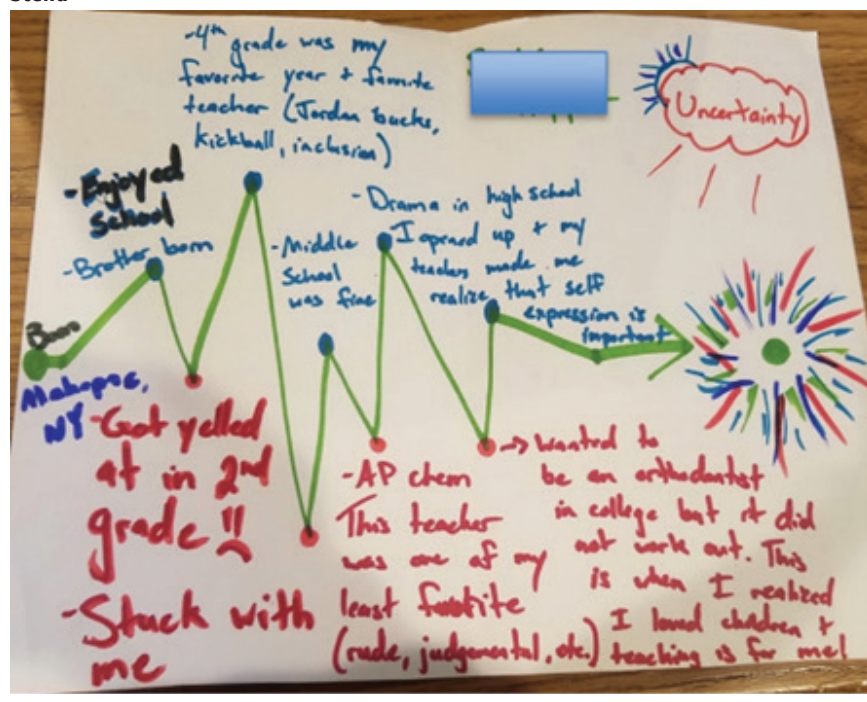 -4th grade was my
favorite year + favorite
teacher (Jordan bucks,
kickball, inclusion)
Uncertainty
-Enjoyed
School
-Brother born
-Middle
School
was fine
-Drama in high school
I opened up + my
teachers made me
realize that self
expression is
important
Born
Mahopac,
NY
-Got yelled
at in 2nd
grade!!
-Stuck with
me
-AP chem
This teacher
was one of my
least favorite
(rude, judgemental, etc.)
→ wanted to
be an orthodontist
in college but it did
not work out. This
is when I realized
I loved children +
teaching is for me!